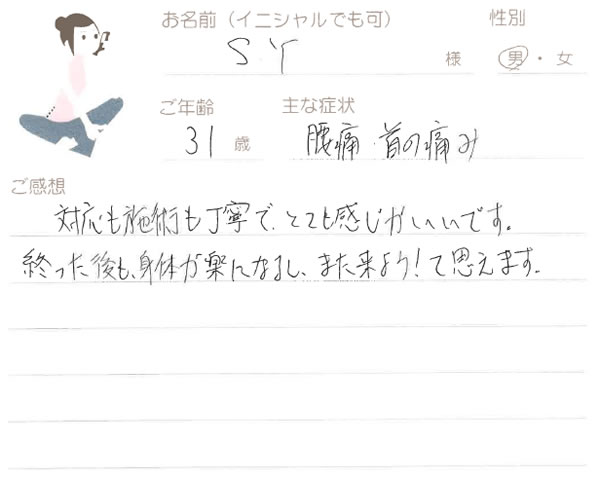 お名前（イニシャルでも可）　性別
S.Y 様　男・女
ご年齢　主な症状
31歳　腰痛 首の痛み
ご感想
対応も施術も丁寧で、とても感じがいいです。
終った後も、身体が楽になるし、また来よう！て思えます。